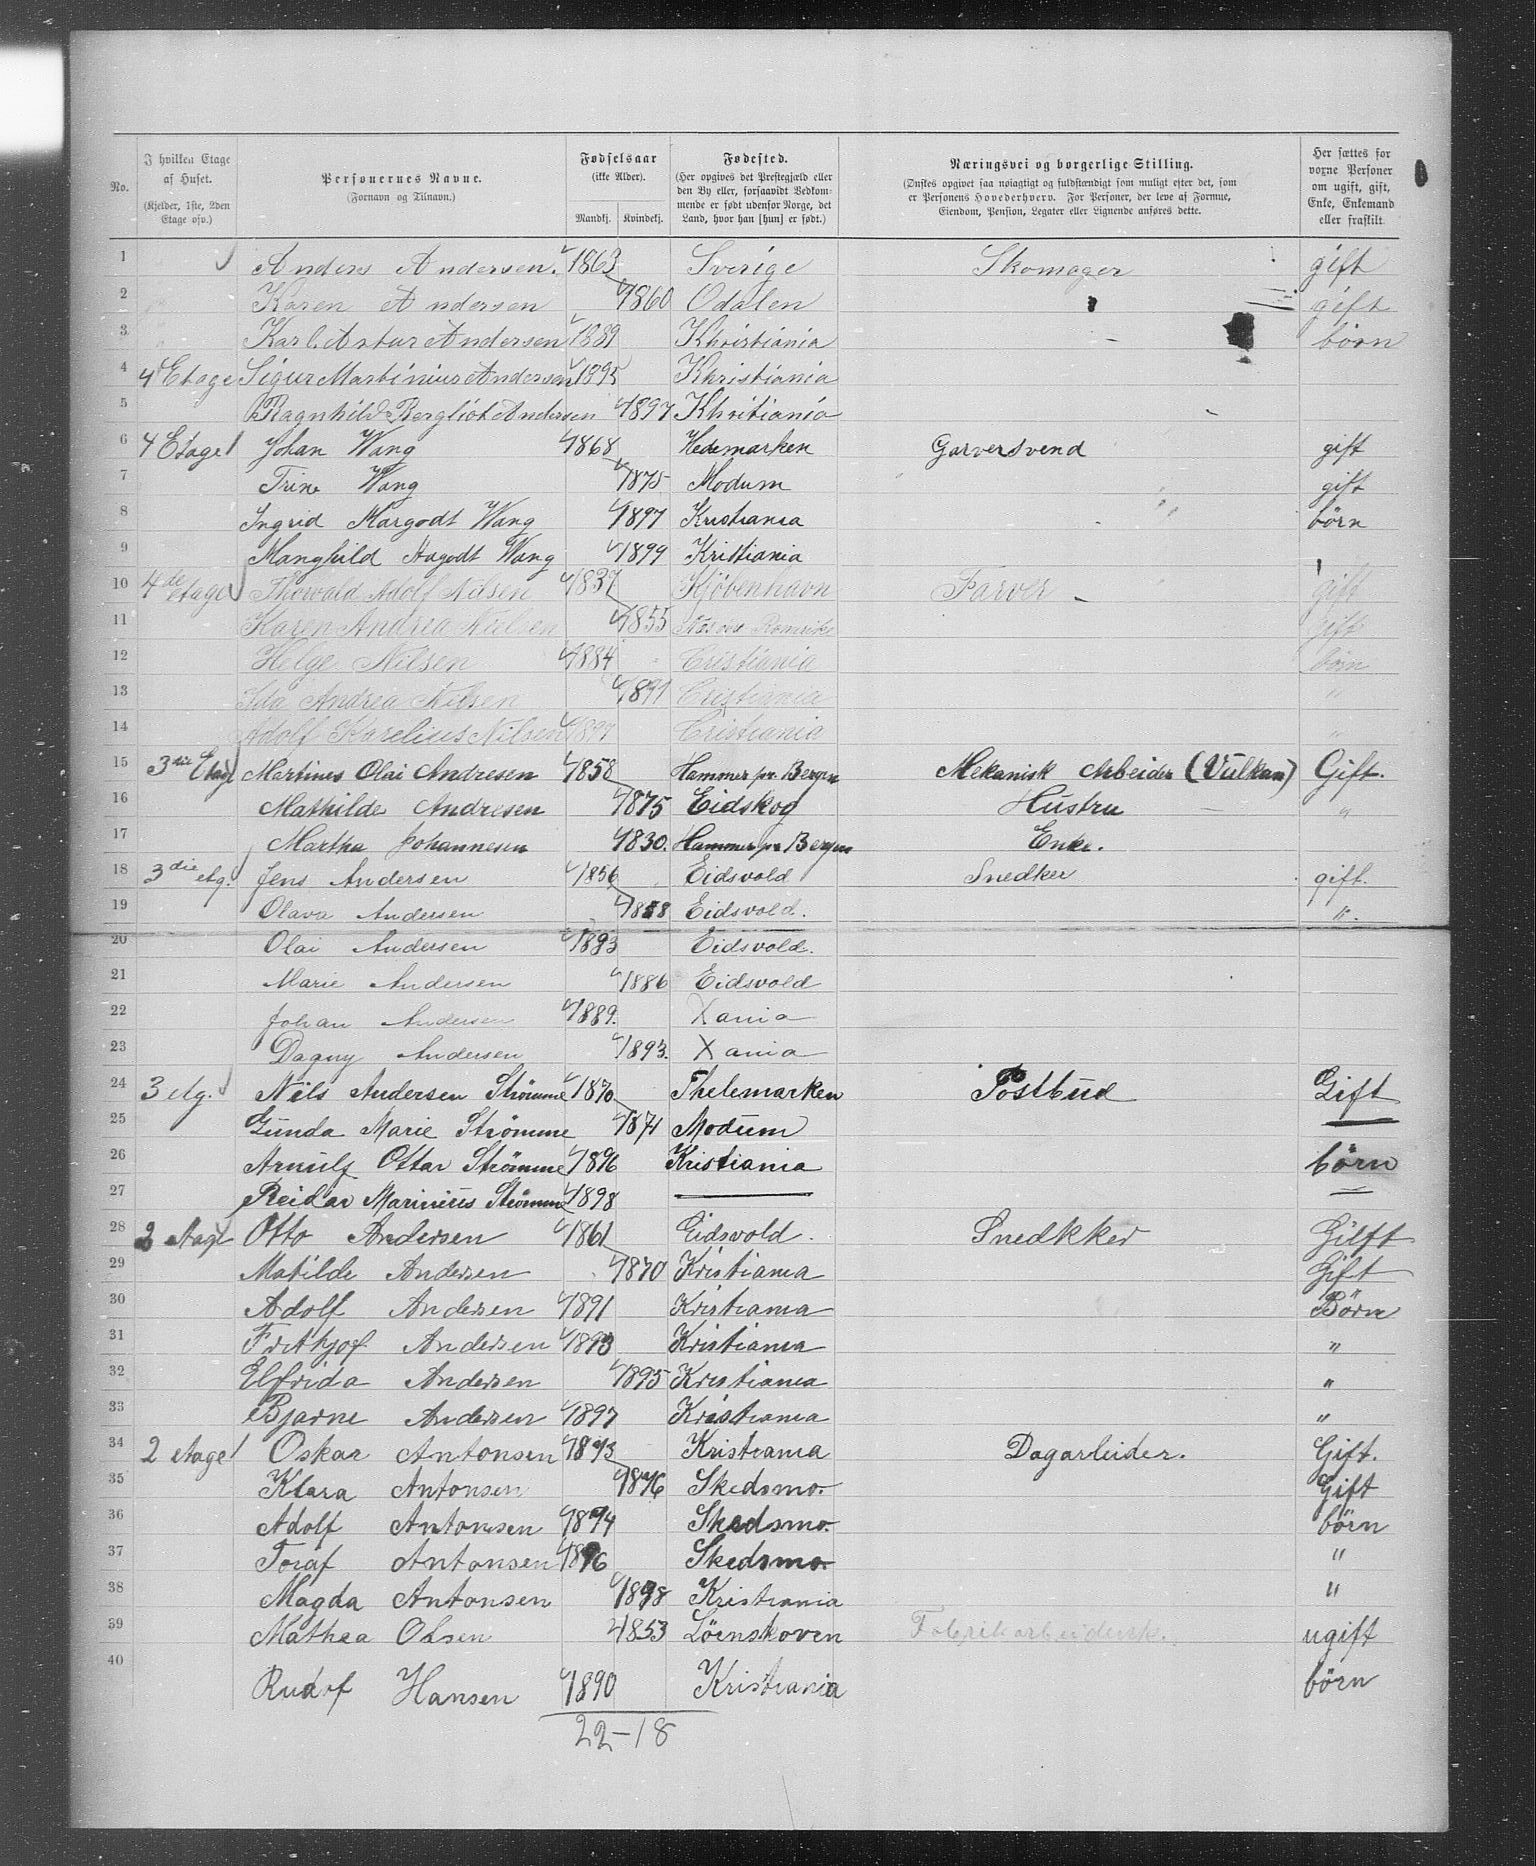 No. | I hvilken Etage af Huset. (Kjelder, 1ste, 2den Etage osv.) | Personernes Navne. (Fornavn og Tilnavn.) | Fødselsaar (ikke Alder). Mandkj. Kvindekj. | Fødested. (Her opgives det Prestegjæld eller den By eller, forsaavidt Vedkommende er født udenfor Norge, det Land, hvor han [hun] er født.) | Næringsvei og borgerlige Stilling. (Ønskes opgivet saa nøiagtigt og fuldstændigt som muligt efter det, som er Personens Hovederhverv. For Personer, der leve af Formue, Eiendom, Pension, Legater eller Lignende anføres dette. | Her sættes for voxne Personer om ugift, gift, Enke, Enkemand eller fraskilt.
1 Anders Andersen. 1863 Sverige Skomager gift
2 Karen Andersen 1860 Odalen gift
3 Karl. Artur Andersen 1889 Khristiania børn
4 4 Etage Sigur Martinius Andersen 1895 Khristiania
5 Ragnhild Bergliot Andersen 1897 Khritiania
6 4 Etage Johan Wang 1868 Hedemarken Garversvend gift
7 Trine Wang 1875 Modum gift
8 Ingrid Margodt Wang 1897 Kristiania børn
9 Manghild Aagodt Wang 1899 Kristiania
10 4de etage Thorvald Adolf Nilsen 1837 Kjøbenhavn Farver gift
11 Karen Andrea Nielsen 1855 Romrike gift
12 Helge Nilsen 1884 Cristiania børn
13 Ida Andrea Nilsen 1891 Cristiania
14 Adolf Karelius Nilsen 1897 Cristiania "
15 3die Etage Martines Olai Andresen 1858 Hammer pr. Bergen Mekanisk Arbeider (Vulkan) Gift.
16 Mathilde Andresen 1875 Eidskog Hustru "
17 Martha Johannesen 1830. Hammer pr Bergen Enke.
18 3die etg. Jens Andersen 1856 Eidsvold Snedker gift.
19 Olava Andersen 1858 Eidsvold. ".
20 Olai Andersen 1883 Eidsvold.
21 Marie Andersen 1886 Eidsvold
22 Johan Andersen 1889. Xania
23 Dagny Andersen 1893. Xania
24 3 etg. Nils Andersen Strömme 1870 Thelemarken Postbud Gift
25 Gunda Marie Strömme 1871 Modum —
26 Arnulf Ottar Strömme 1896 Kristiania børn
27 Reidar Marinius Strömme 1898 — —
28 2 etage Otto Andersen 1861 Eidsvold. Snedkker Gilft
29 Matilde Andersen 1870 Kristiania Gift
30 Adolf Andersen 1891 Kristiania Børn
31 Frithjof Andersen 1893 Kristiania "
32 Elfrida Andersen 1895 Kristiania "
33 Bjarne Andersen 1897 Kristiania "
34 2 etage Oskar Antonsen 1873 Kristiania Dagarbeider. Gift.
35 Klara Antonsen 1876 Skedsmo. Gift
36 Adolf Antonsen 1894 Skedsmo. børn
37 Toraf Antonsen 1896 Skedsmo. "
38 Magda Antonsen 1898 Kristiania "
39 Mathea Olsen 1853 Löenskoven Fabrikarbeiderske. ugift
40 Rudof Hansen 1890 Kristiania børn
22-18